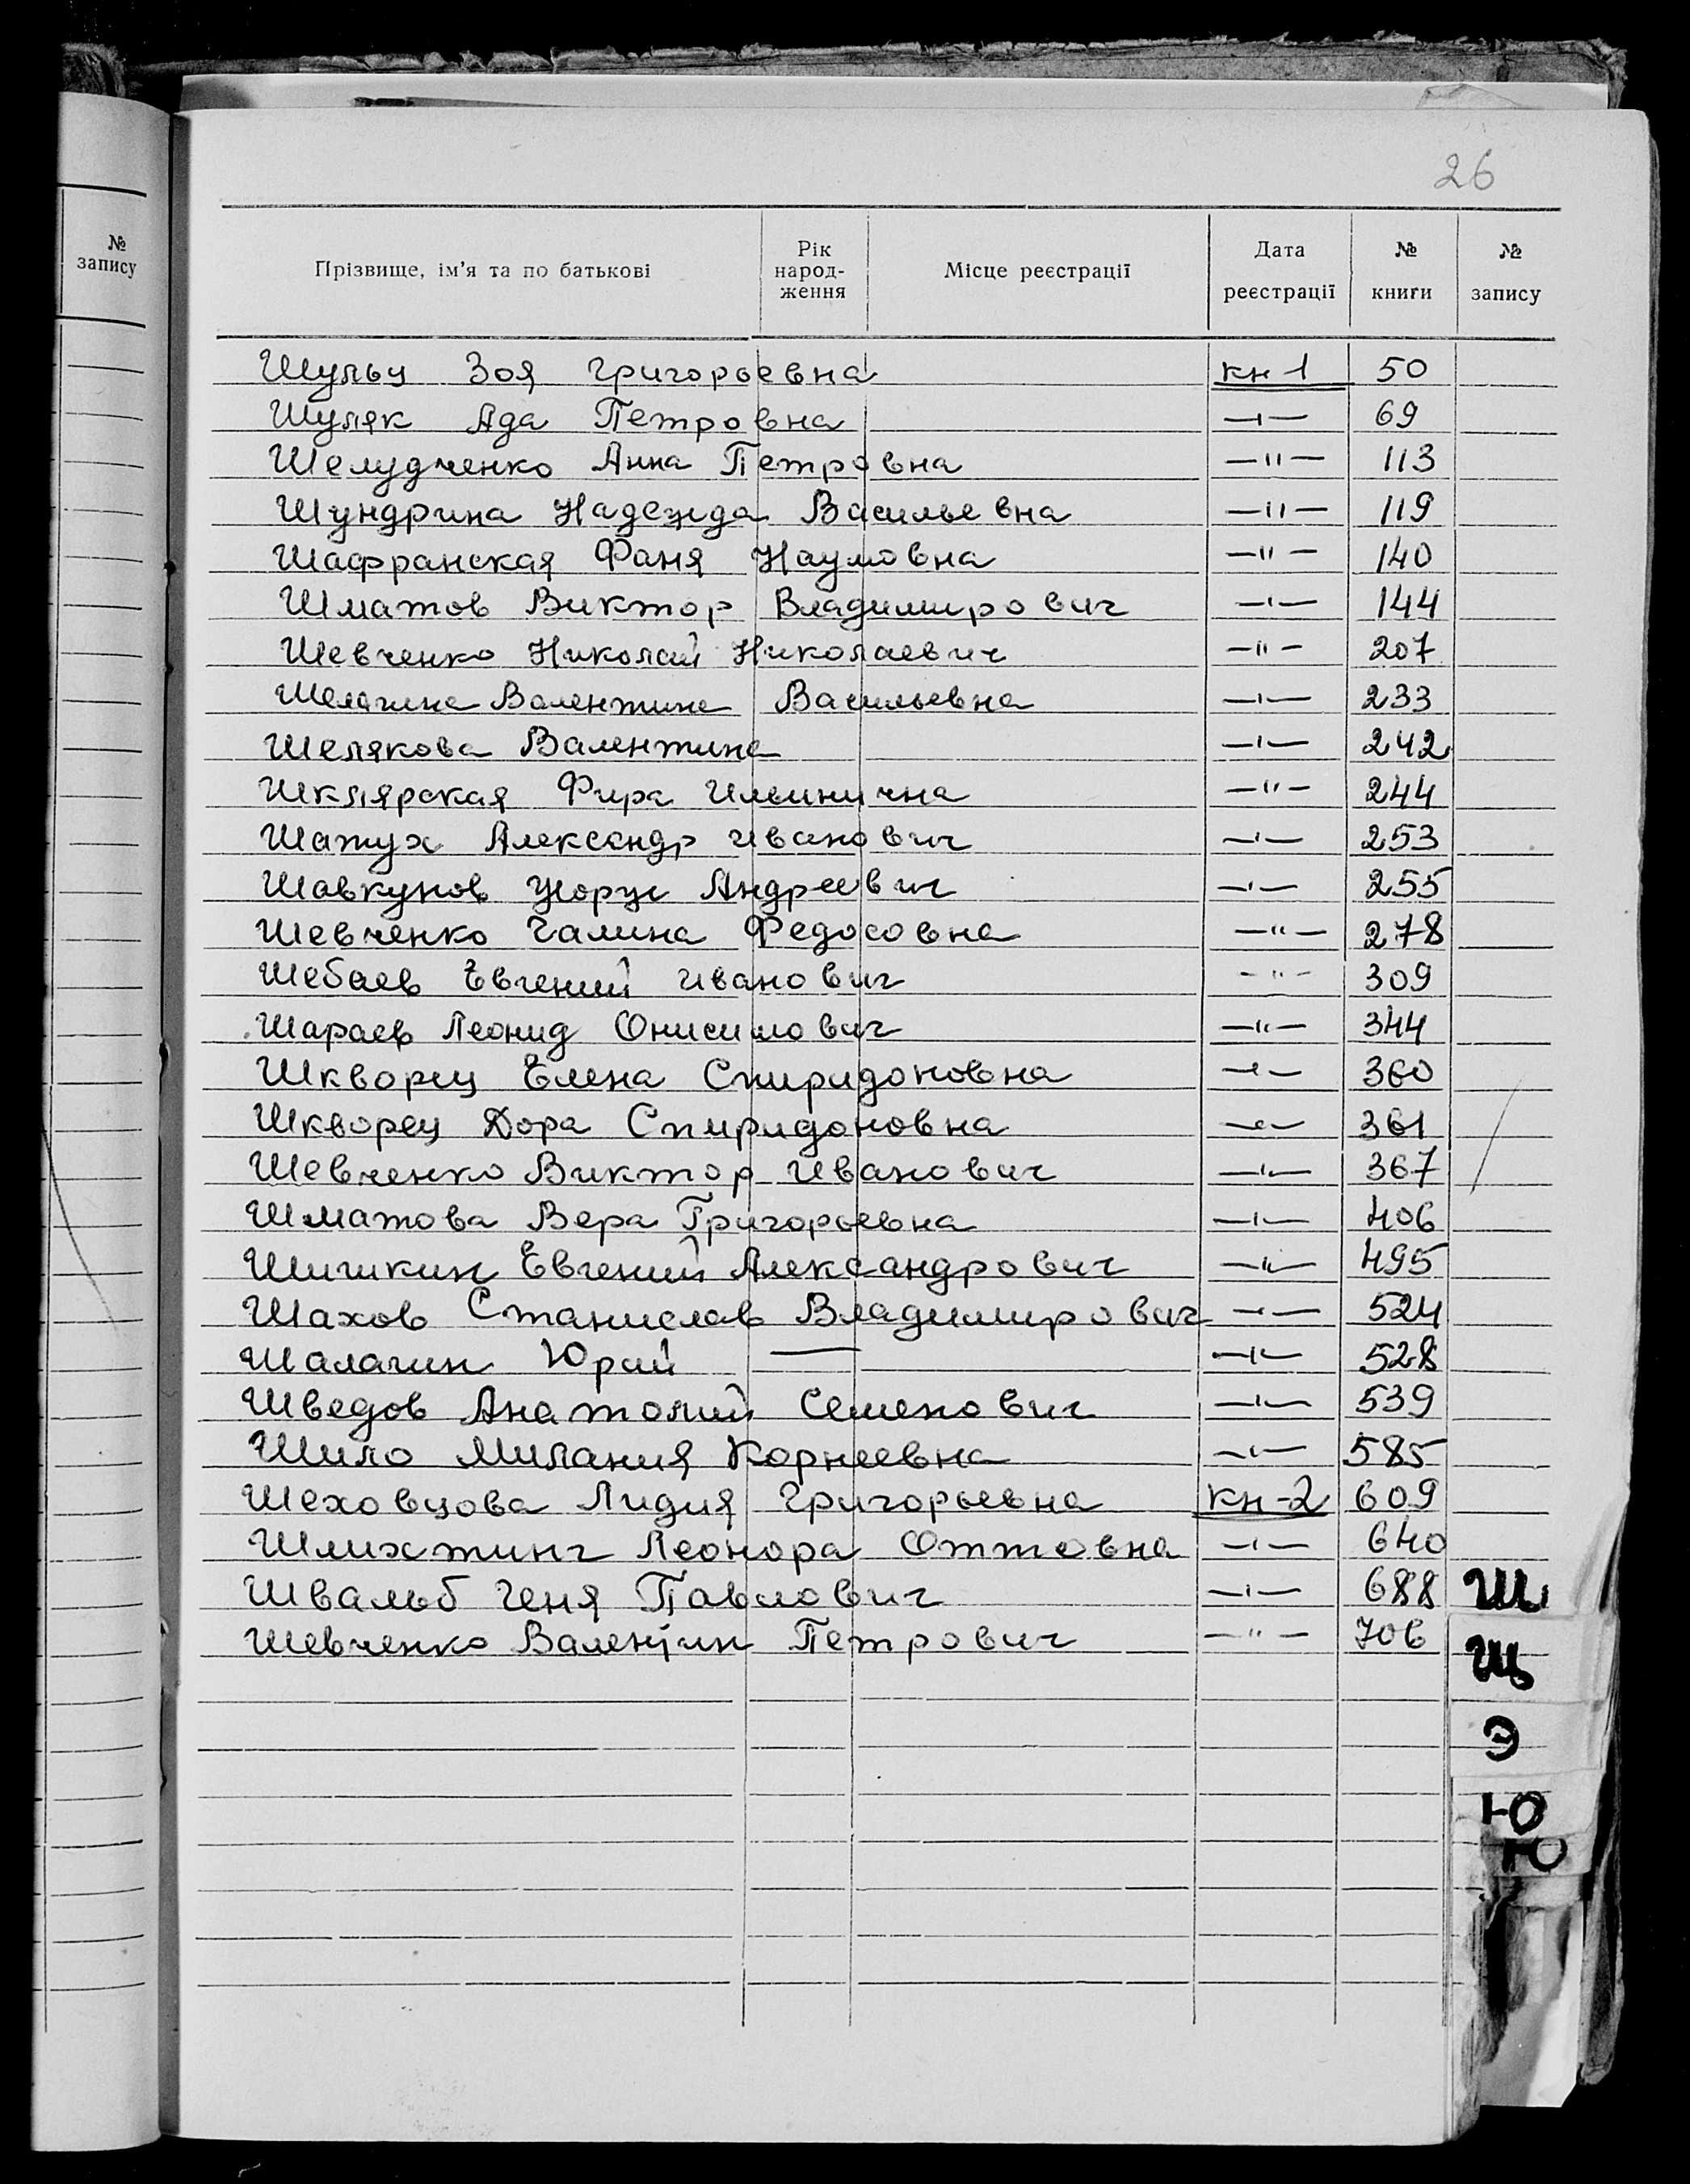 26
№ запису
Прізвище, ім'я та по батькові Рік народ-ження Місце реєстрації Дата реєстрації № книги № запису
Шульц Зоя Григорьевна кн 1 50
Шуляк Ада Петровна —ı— 69
Шелудченко Анна Петровна —ıı— 113
Шундрина Надежда Васильевна —ıı— 119
Шафранская Фаня Наумовна —ıı— 140
Шматов Виктор Владимирович —ı— 144
Шевченко Николай Николаевич —ıı— 207
Шелагина Валентина Васильевна —ı— 233
Шелякова Валентина —ı— 242
Шклярская Фира Ильинична —ıı— 244
Шатух Александр Иванович —ı— 253
Шавкунов Жорж Андреевич —ı— 255
Шевченко Галина Федосовна —ıı— 278
Шебаев Евгений Иванович —ıı— 309
Шараев Леонид Онисимович —ıı— 344
Шкворец Елена Спиридоновна —ıı— 360
Шкворец Дора Спиридоновна —ıı— 361
Шевченко Виктор Иванович —ıı— 367
Шматова Вера Григорьевна —ı— 406
Шишкин Евгений Александрович —ıı— 495
Шахов Станислав Владимирович —ı— 524
Шалагин Юрий — —ıı— 528
Шведов Анатолий Семенович —ı— 539
Шило Милания Корнеевна —ı— 585
Шеховцова Лидия Григорьевна кн-2 609
Шлихтинг Леонора Оттовна —ı— 640
Швальб Геня Павлович —ı— 688
Шевченко Валентин Петрович —ıı— 706
Ш
Щ
Э
Ю
Ю